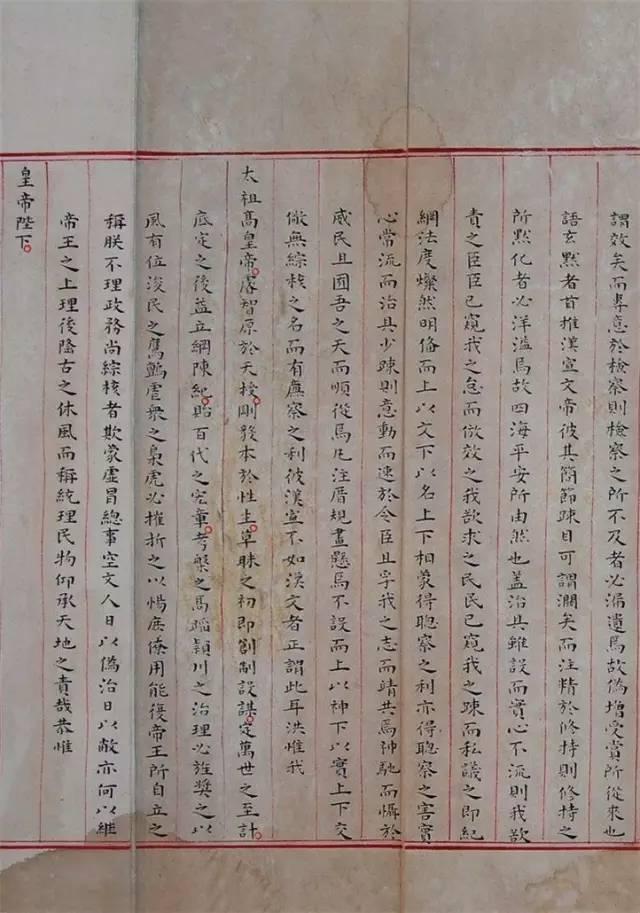 謂效矣而專意於檢察則檢察之所不及者必漏遺焉故偽增受賞所從來也
語玄默者首推漢宣文帝彼其簡節疎目可謂濶矣而注精於修持則修持之
所默化者必洋溢焉故四海平安所由然也蓋治具雖設而實心不流則我欲
責之臣臣已窺我之怠而倣效之我欲求之民民已窺我之疎而私議之即紀
綱法度燦然明備而上以文下以名上下相蒙得聰察之利亦得聰察之害實
心常流而治具少疎則意動而速於令臣且孚我之志而靖共焉神馳而懾於
威民且囿吾之天而順從焉凡注厝規畫懸焉不設而上以神下以實上下交
儆無綜核之名而有廉察之利彼漢宣不如漢文者正謂此耳洪惟我
太祖高皇帝睿智原於天授剛毅本於性生草昧之初即創制設謀定萬世之至計
底定之後益立綱陳紀貽百代之宏章考槃之馬蹈潁川之治理必旌獎之以
風有位浚民之鷹鸇虐衆之梟虎必摧折之以惕庶僚用能復帝王所自立之
稱朕不理政務尚綜核者欺蒙虛冒總事空文人日以偽治日以敝亦何以繼
帝王之上理後隆古之休風而稱統理民物仰承天地之責哉恭惟
皇帝陛下